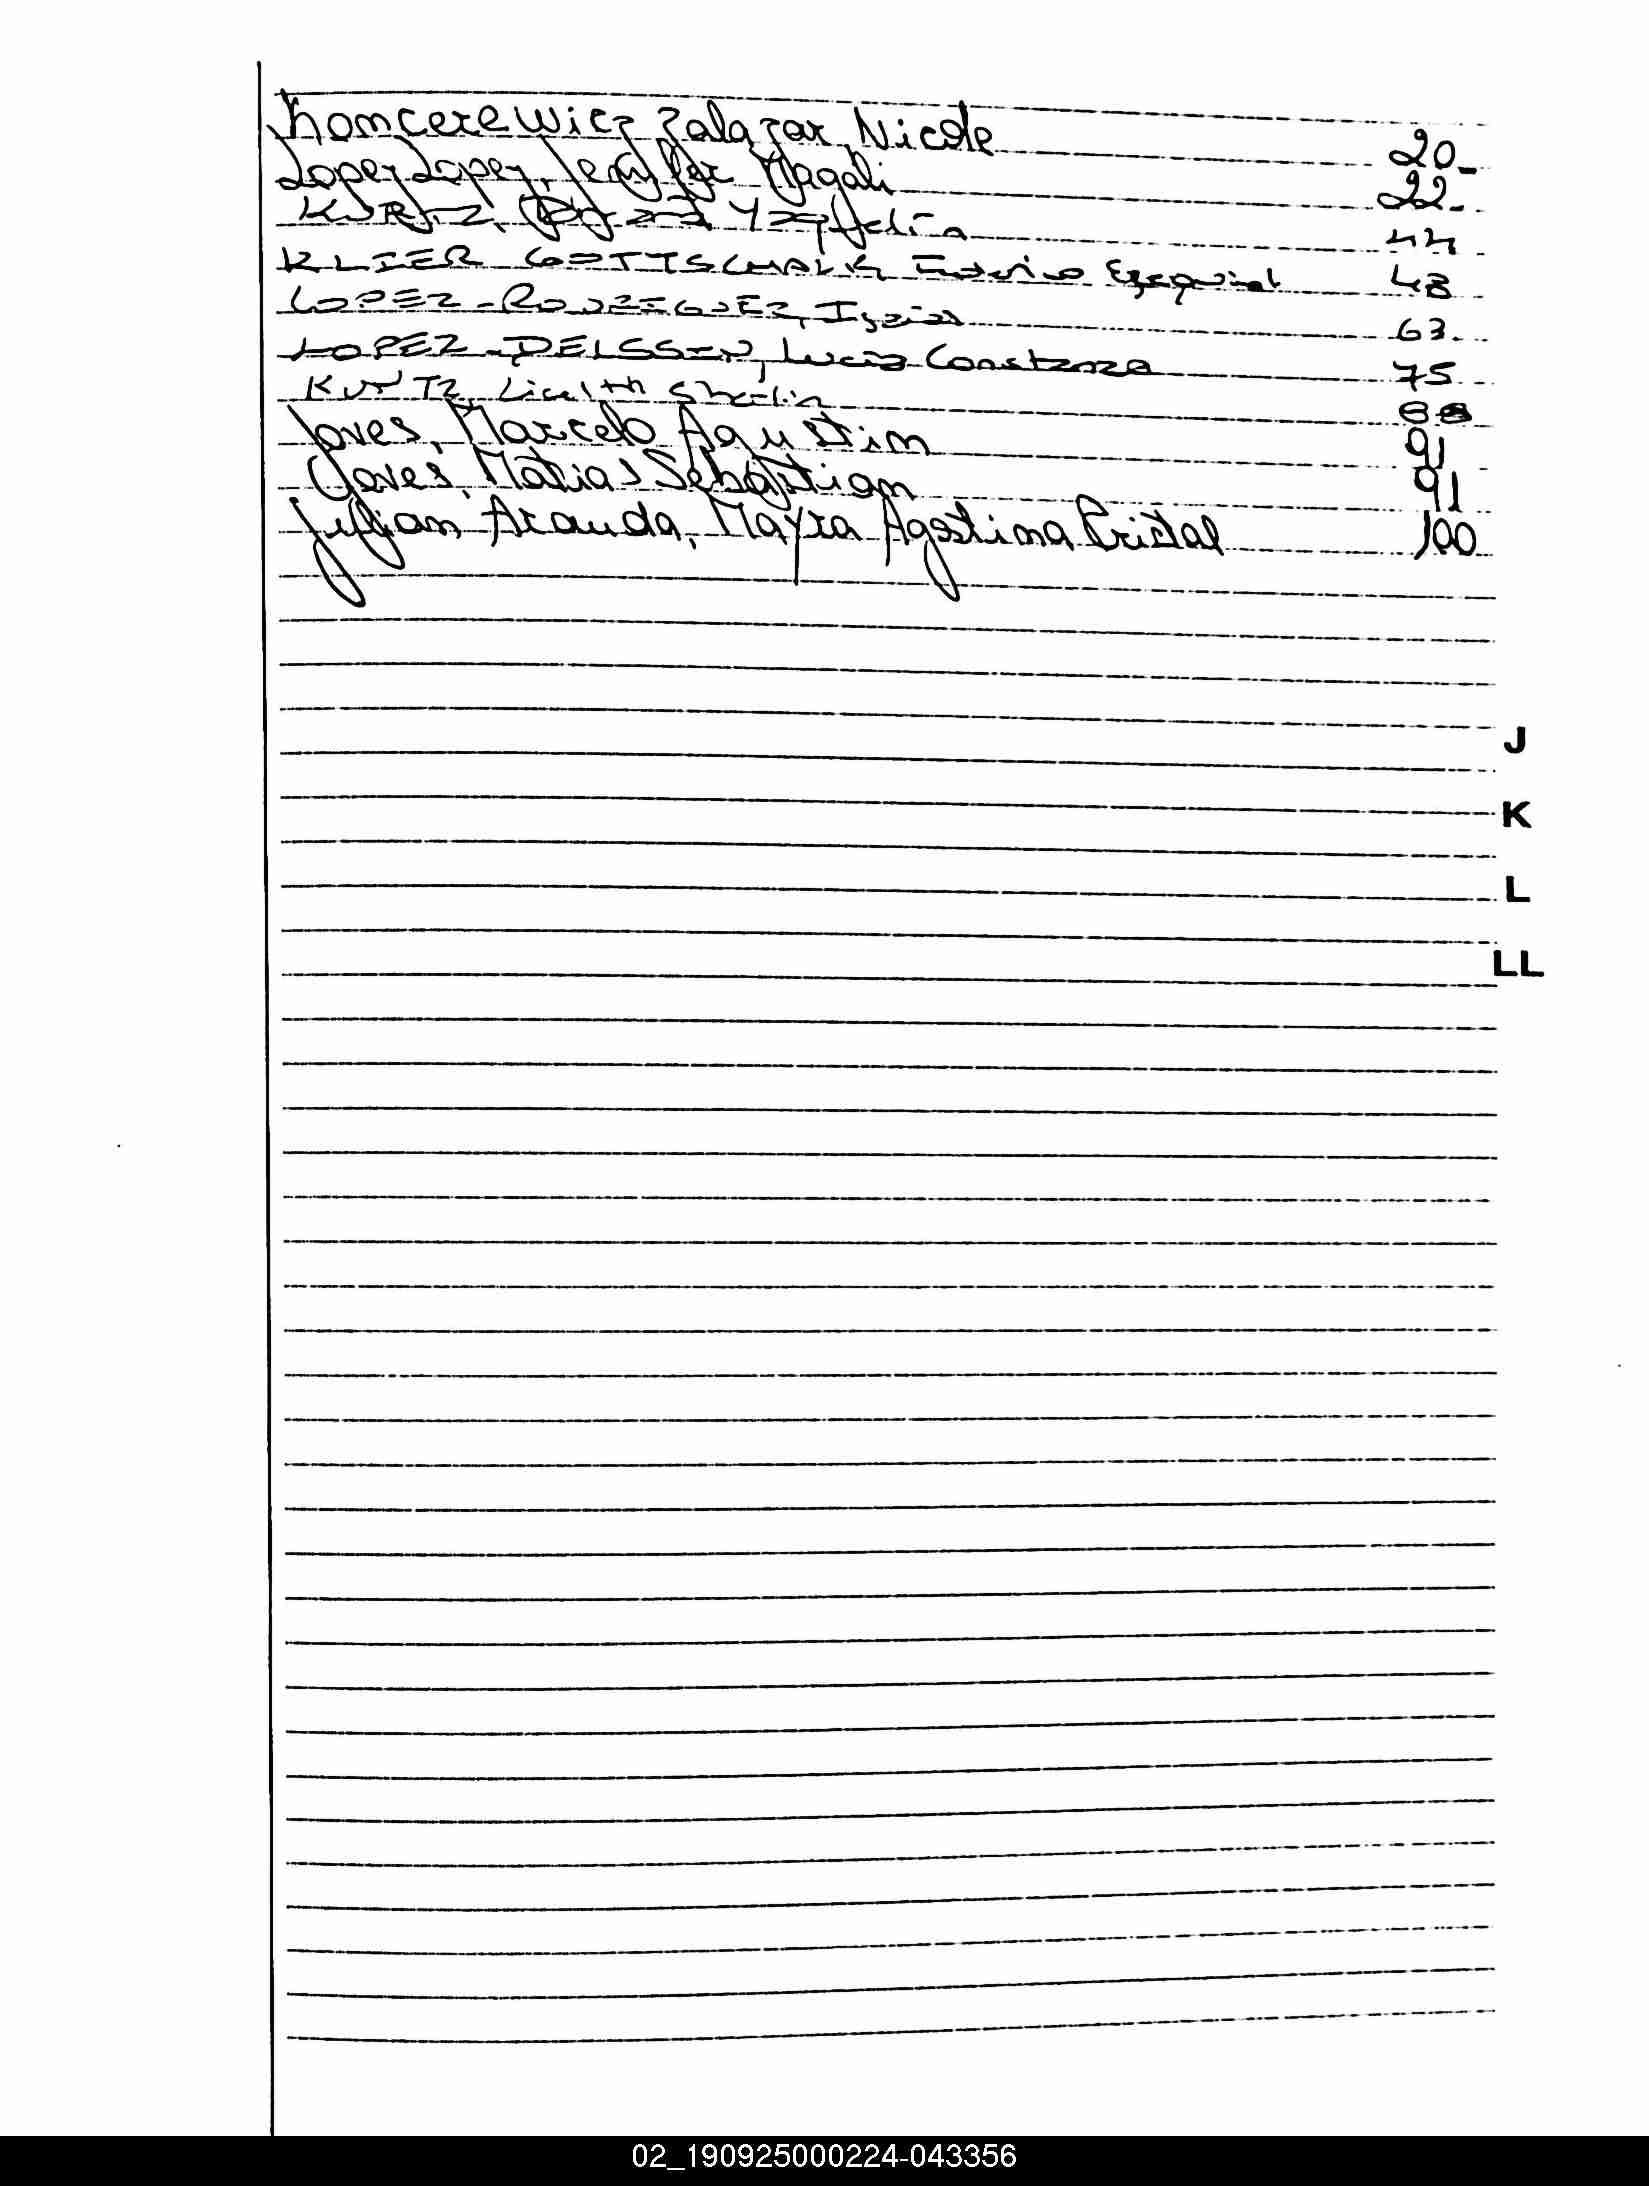 Koncerewicz Zalazar, Nicole 20-
Lopez Lopez, Jenyffer Magali 22-
KURTZ, 44
KLIER GOTTSCHALK Federico Ezequiel 48
LOPEZ-RODRIGUEZ, Isaias 63
LOPEZ-DELSSIN, Lucia Constanza 75
KURTZ, Sheilin 88
Joves, Marcelo Agustin 91
Joves, Matias Sebastian 91
Jullian Aranda, Mayra Agostina Cristal 100
J
K
L
LL
02_190925000224-043356